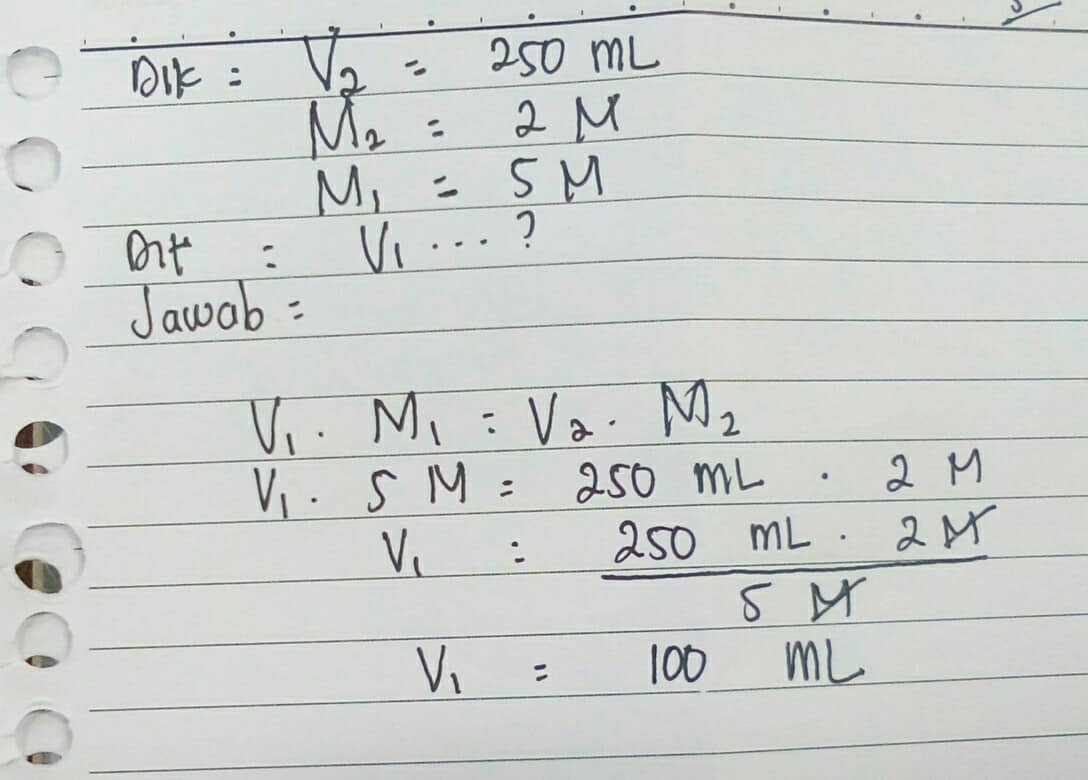 Dik : V₂ = 250 mL
M₂ = 2 M
M₁ = 5 M
Dit : V₁ ... ?
Jawab =
V₁ . M₁ = V₂ . M₂
V₁ . 5 M = 250 mL . 2 M
V₁ = 250 mL . 2 M
5 M
V₁ = 100 mL